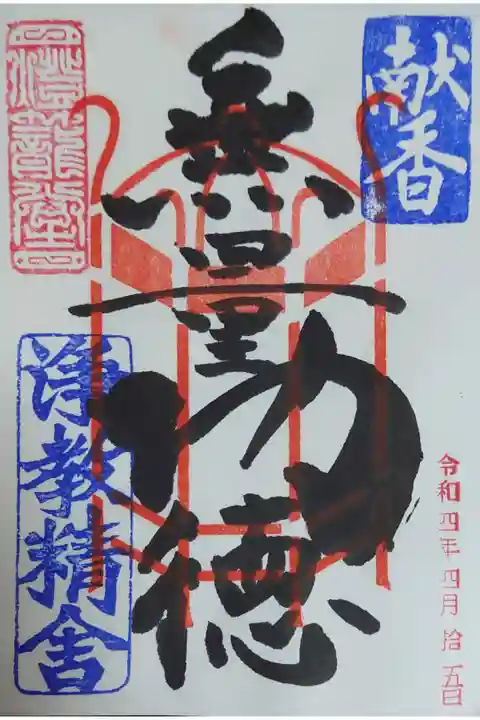 献香
無量功德
令和四年四月拾五日
浄教精舎